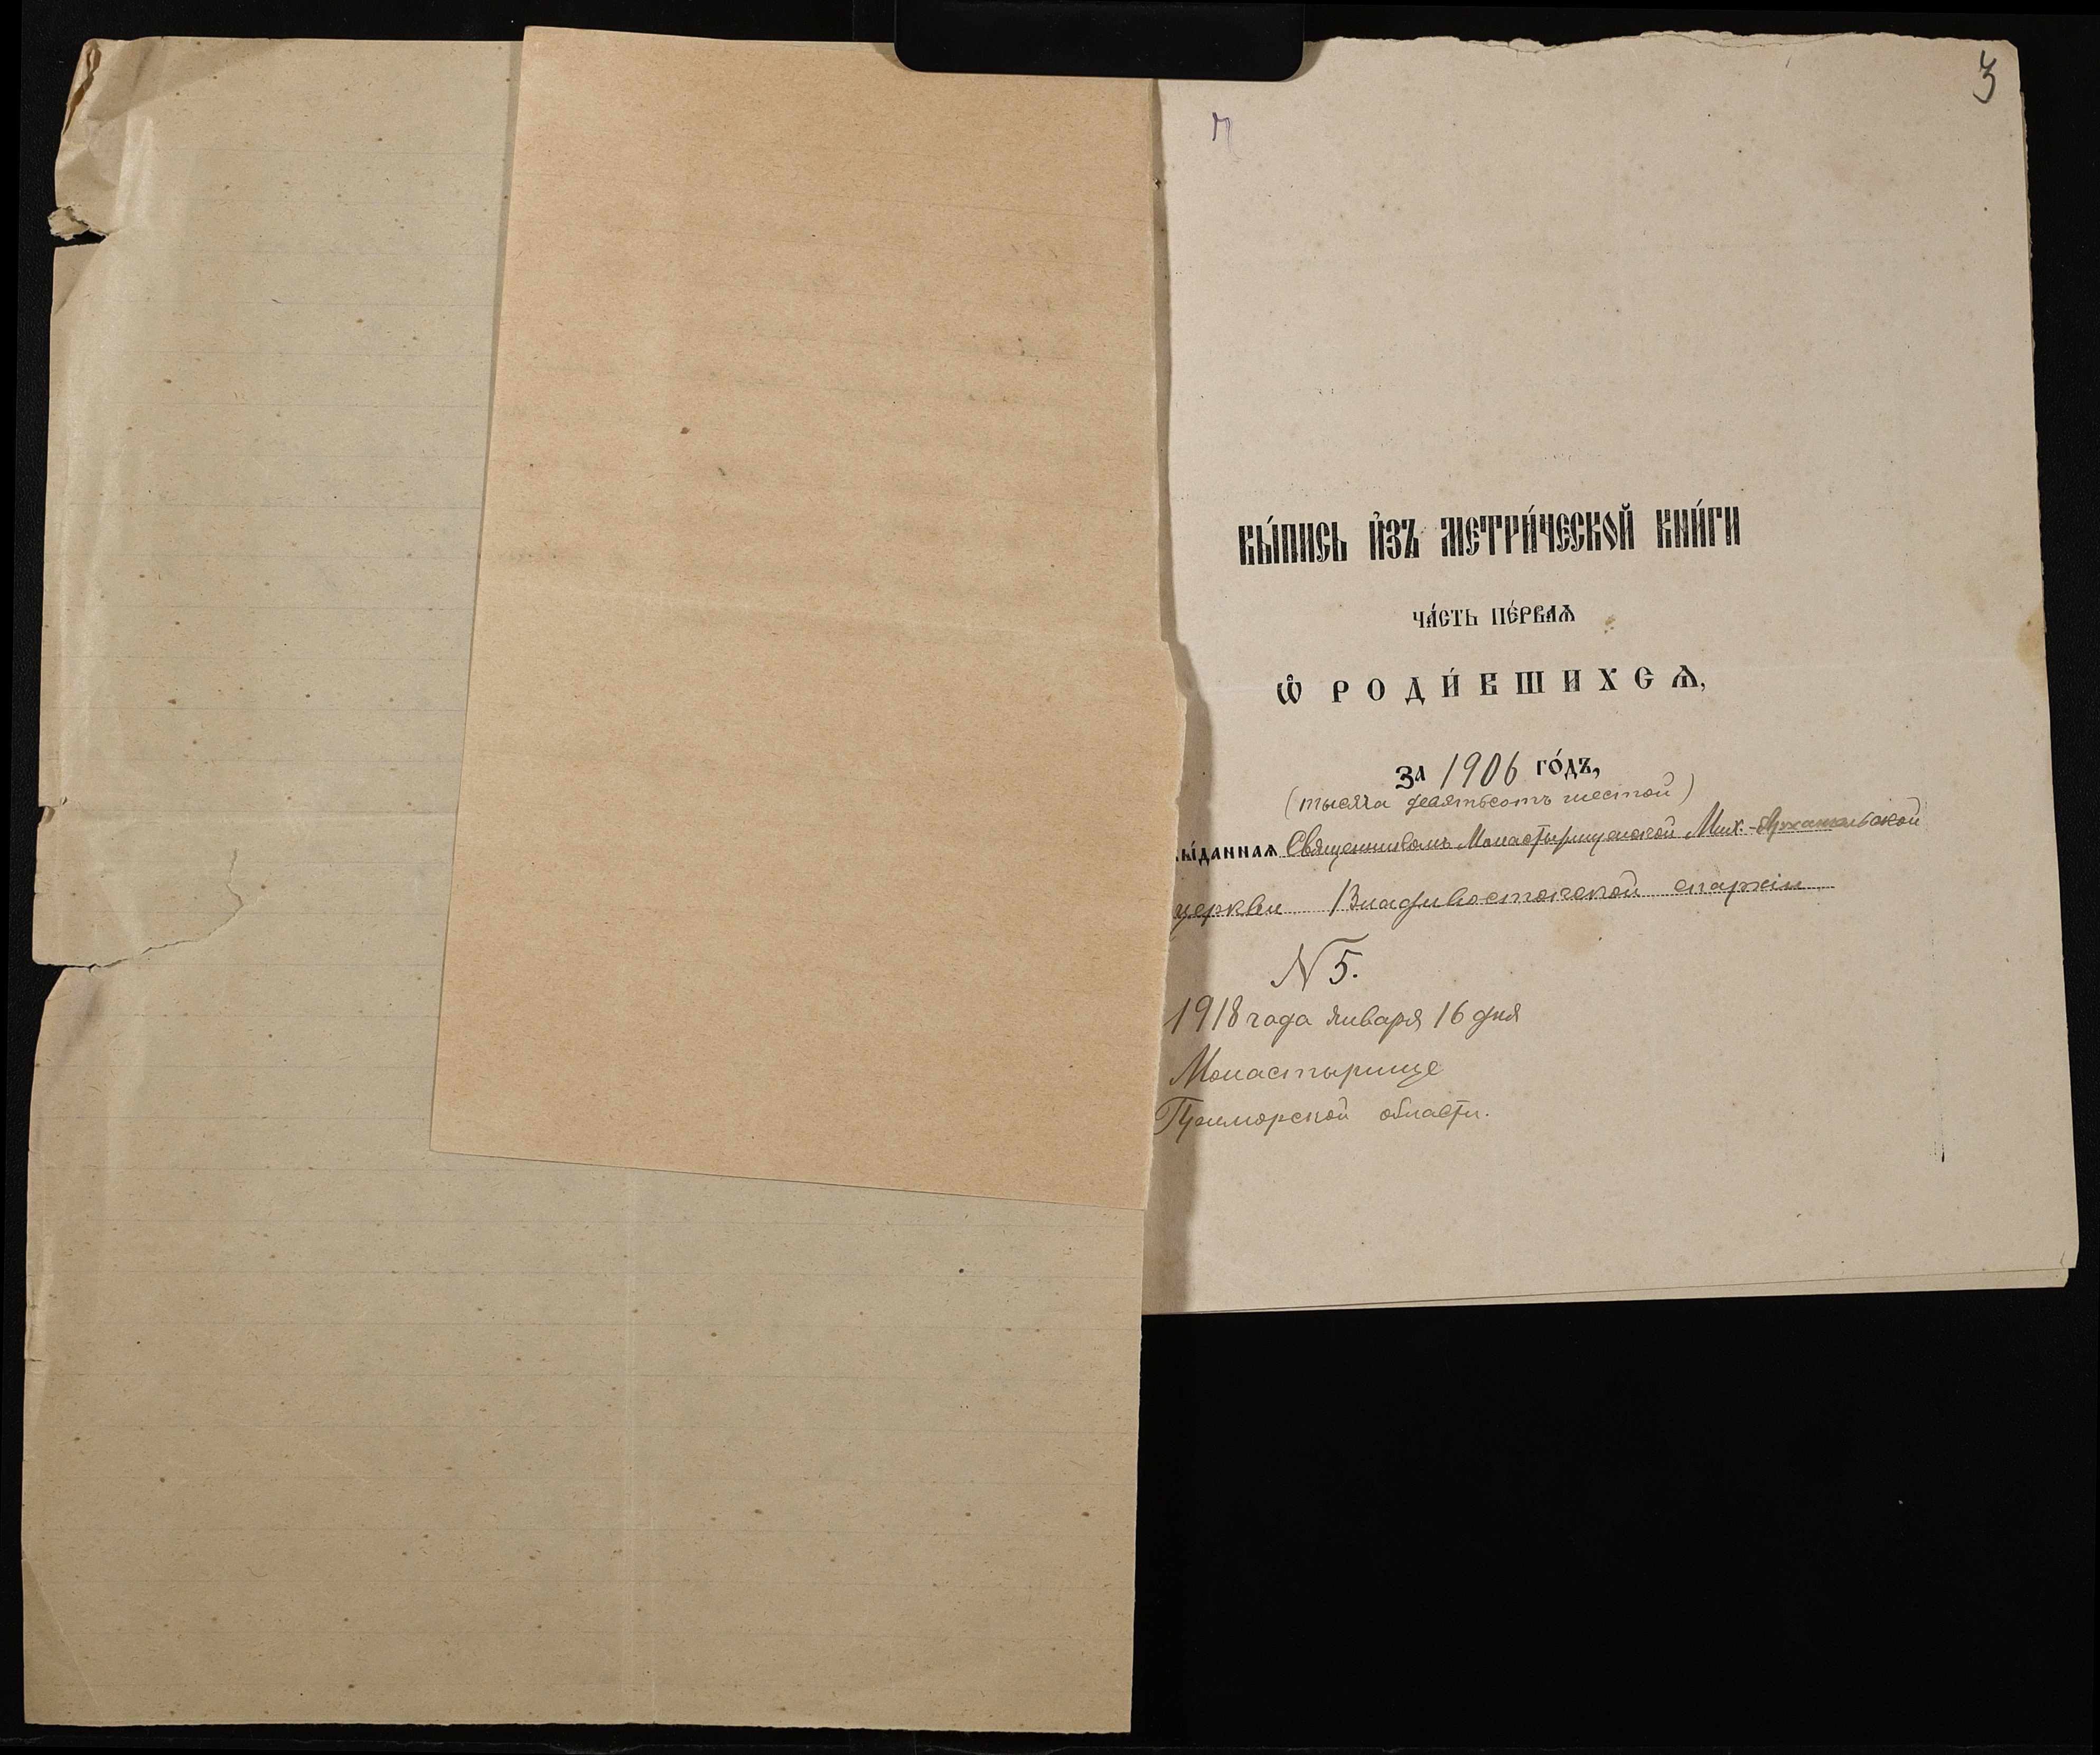 3
вы́пись и҆зъ метри́ческой кни́ги
ча́сть пе́рваѧ
ѽ роди́вшихсѧ,
за 1906 го́дъ,
(тысяча девятьсотъ шестой)
вы́даннаѧ Священникомъ Монастырищенской Мих.-Архангельской
церкви Владивостокской епархіи
N 5.
1918 года января 16 дня
Монастырище
Приморской области.